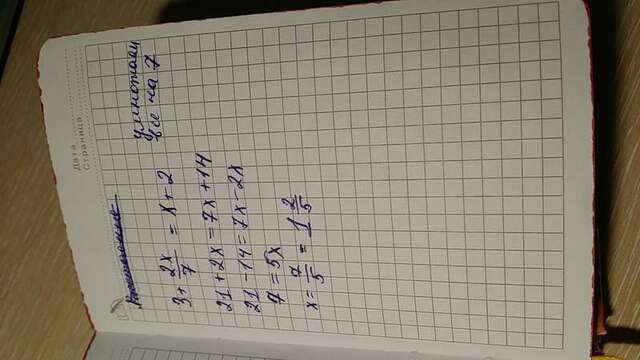 Дата
Страница
3 + 2x/7 = x + 2 умножаем
все на 7
21 + 2x = 7x + 14
21 - 14 = 7x - 2x
7 = 5x
x = 7/5 = 1 2/5